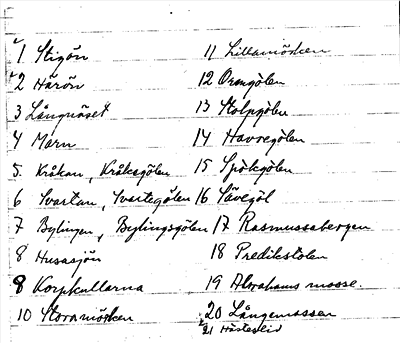 1 Stigön
2 Härön
3 Långnäset
4 Marn
5. Kråkan, Kråkegölen
6 Svartan, Svartegölen
7 Bylingen, Bylingsgölen
8 Husasjön
8 Korpkullarna
10 Storamörken
11 Lillamörken
12 Ormgölen
13 Stolpgölen
14 Havregölen
15 Spökgölen
16 Sävegöl
17 Rasmussabergen
18 Predikstolen
19 Abrahams mosse.
20 Långemossen
21